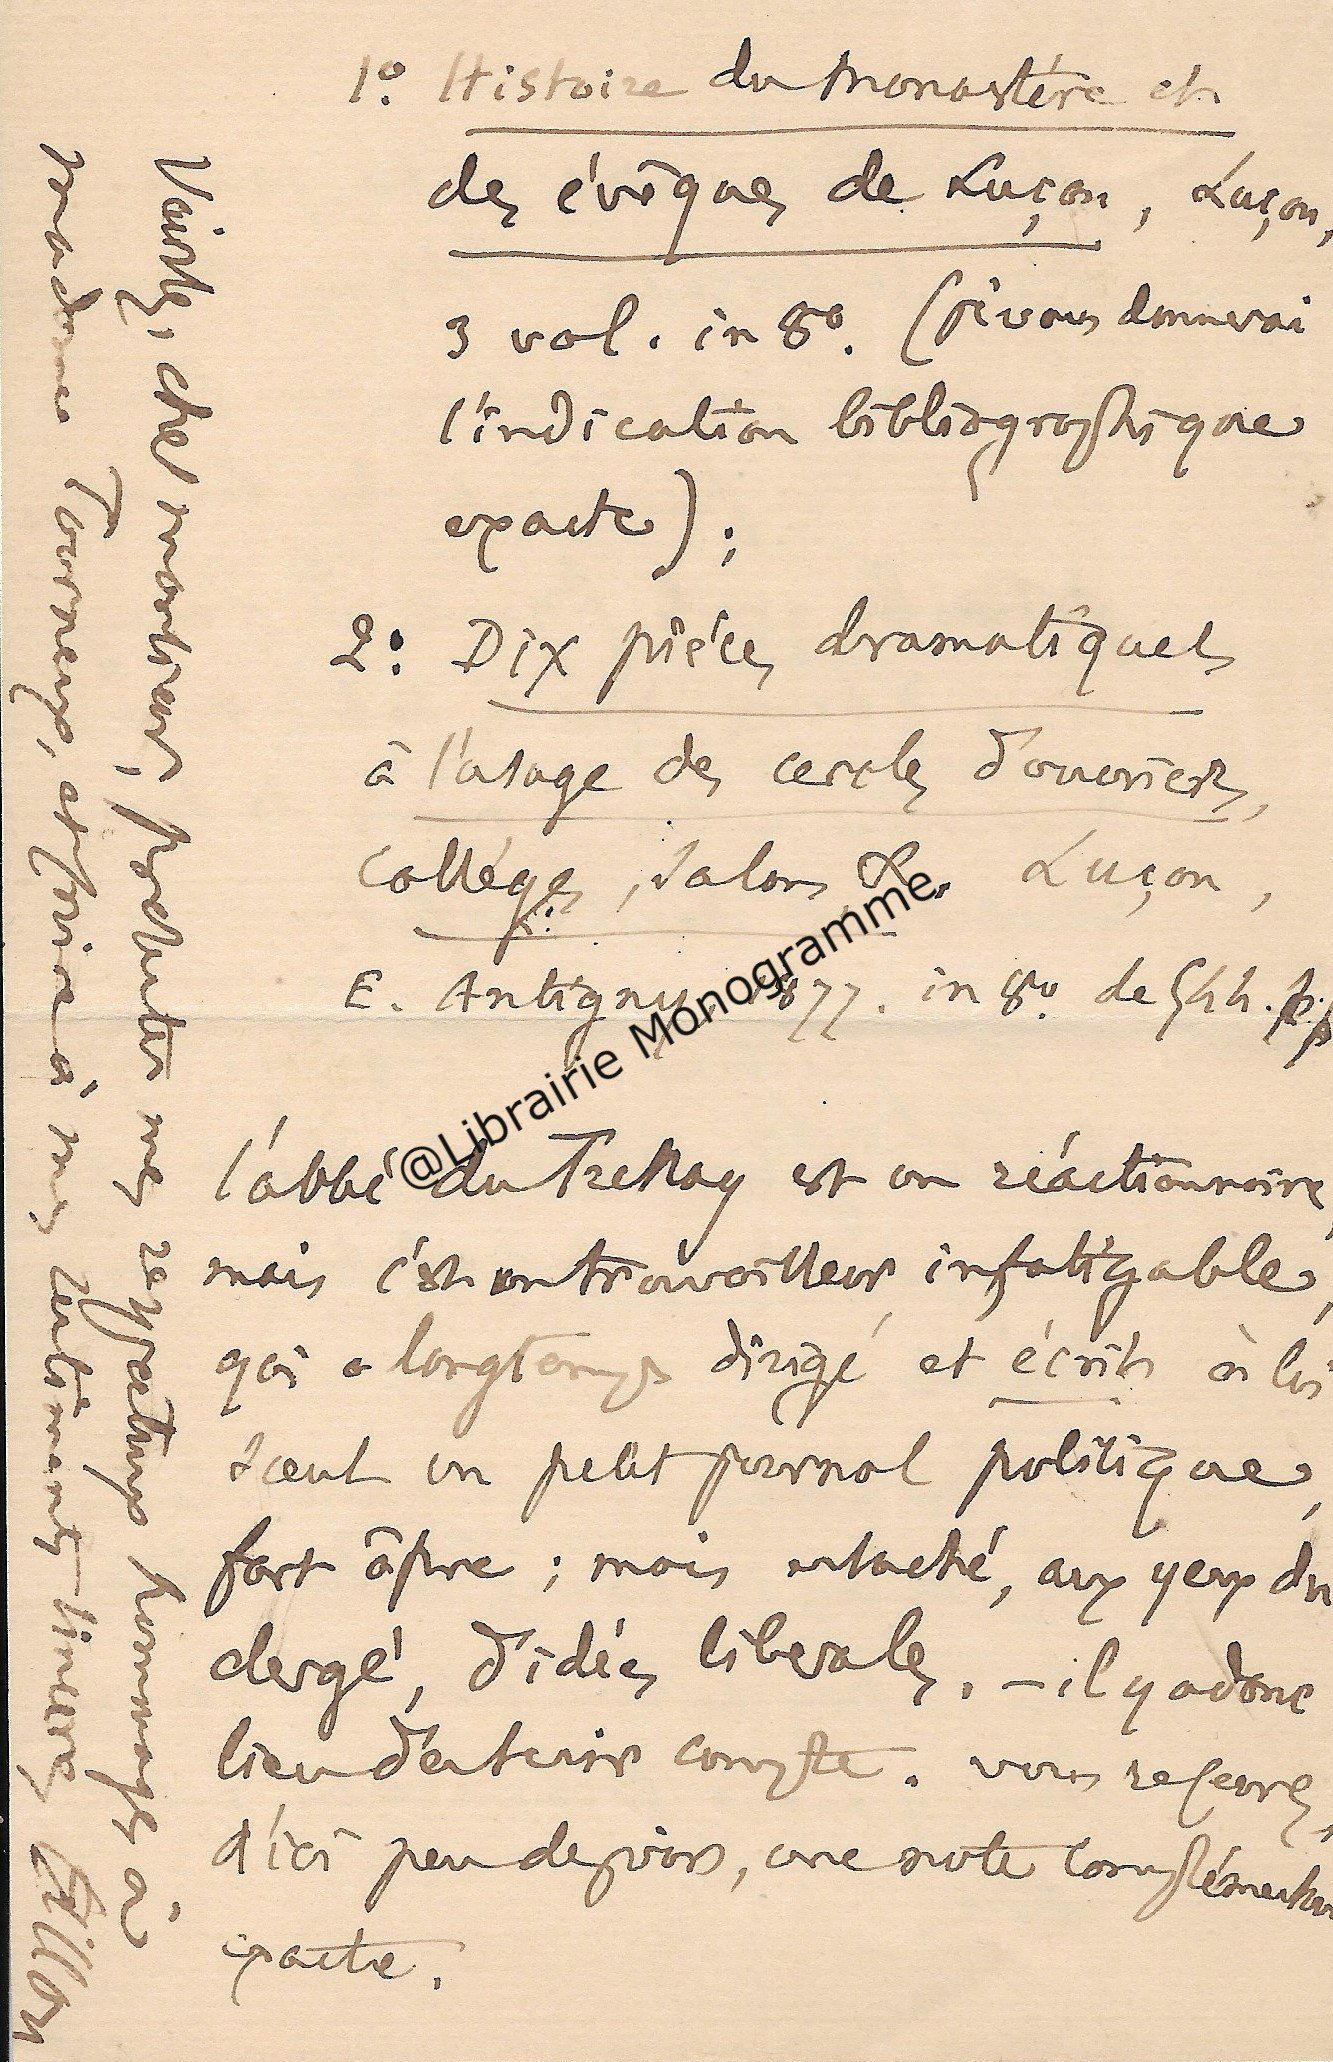 1º. Histoire du monastère et
des évêques de Luçon, Luçon,
3 vol. in 8º. (je vous donnerai
l'indication bibliographique
exacte);
2º. Dix pièces dramatiques
à l'usage des cercles d'ouvriers,
collèges, salons &. Luçon,
E. Antigny. 1877. in 8º. de 544. p.p
l'abbé du Tressay est un réactionnaire,
mais c'est un travailleur infatigable,
qui a longtemps dirigé et écrit à lui
seul un petit journal politique,
fort âpre; mais entaché, aux yeux du
clergé, d'idées libérales. — il y a donc
lieu d'en tenir compte. vous recevrez,
d'ici peu de jours, une note complémentaire
exacte.
cher monsieur, présenter mes respectueux hommages à
madame Tourneux, et croire à mes sentiments sincères
@Librairie Monogramme